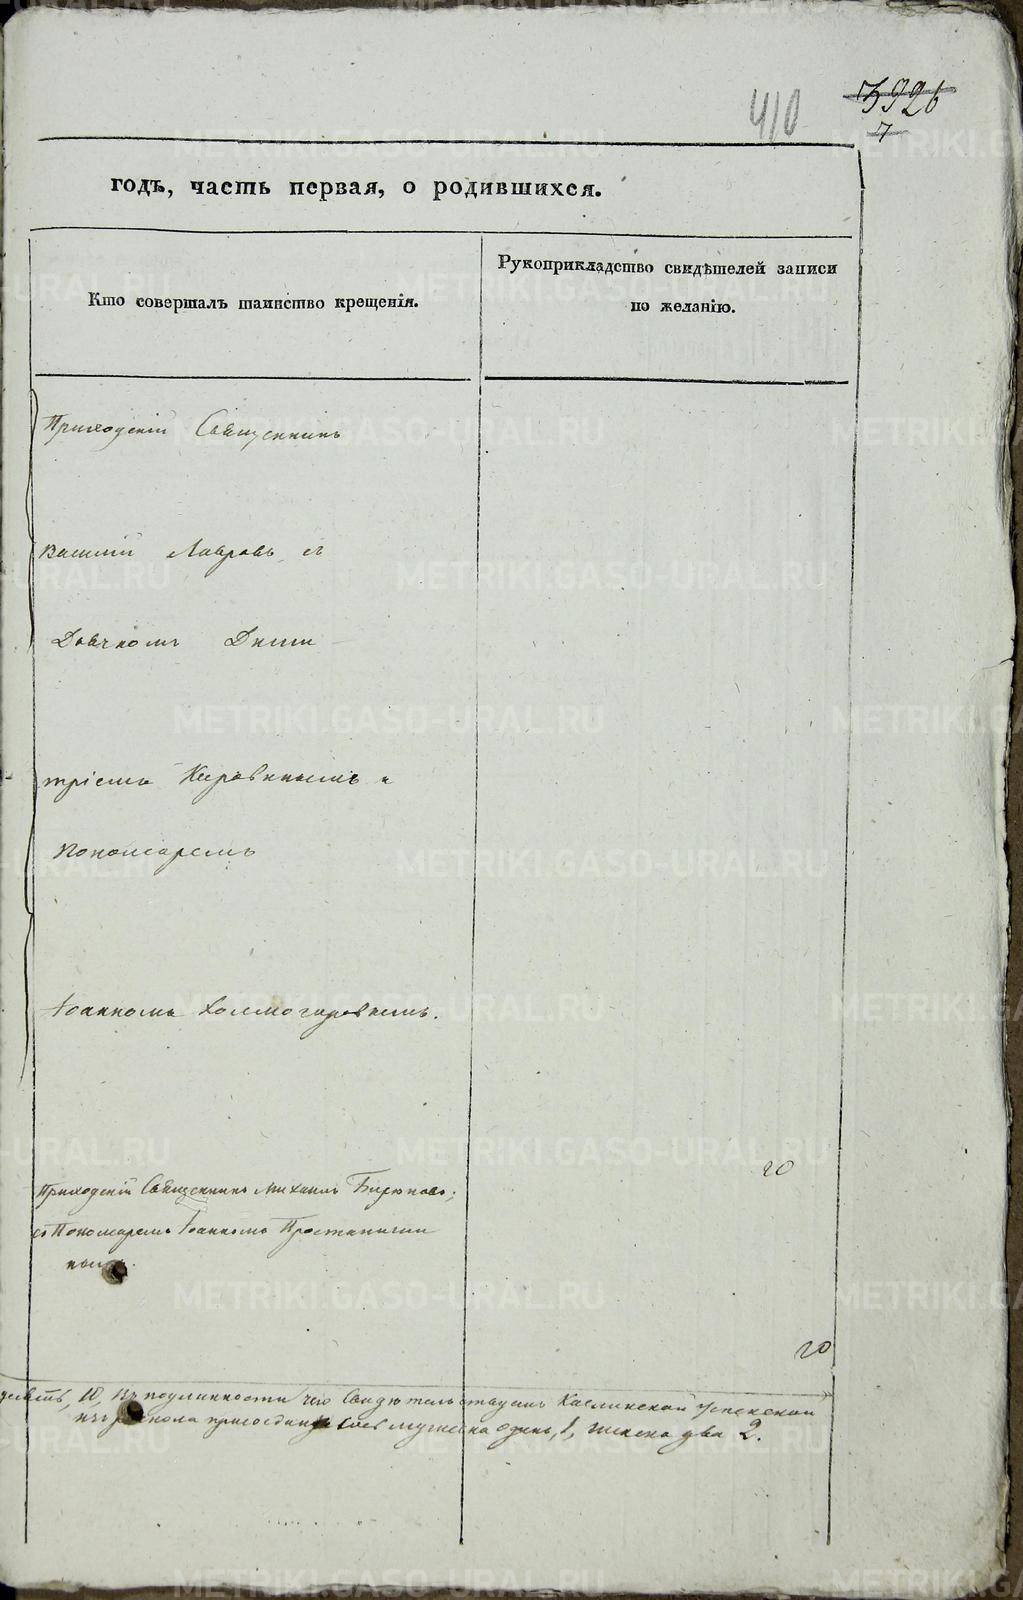 410
3926
7
годъ, часть первая, о родившихся.
Кто совершалъ таинство крещенія.
Рукоприкладство свидѣтелей записи
по желанію.
Приходскій Священникъ
Василій Лавровъ съ
Дьячкомъ Дими
тріемъ Кировымъ и
Пономаремъ
Іоанномъ Холмогоровымъ.
Приходскій Священникъ Михаилъ Бирюковъ;
съ Пономаремъ Іоанномъ
20
20
10, въ подлинности чего Свидѣтельствуемъ Каслинской Успенской
изъ раскола присоединилось мужеска одинъ, 1, женска два 2.
METRIKI.GASO-URAL.RU